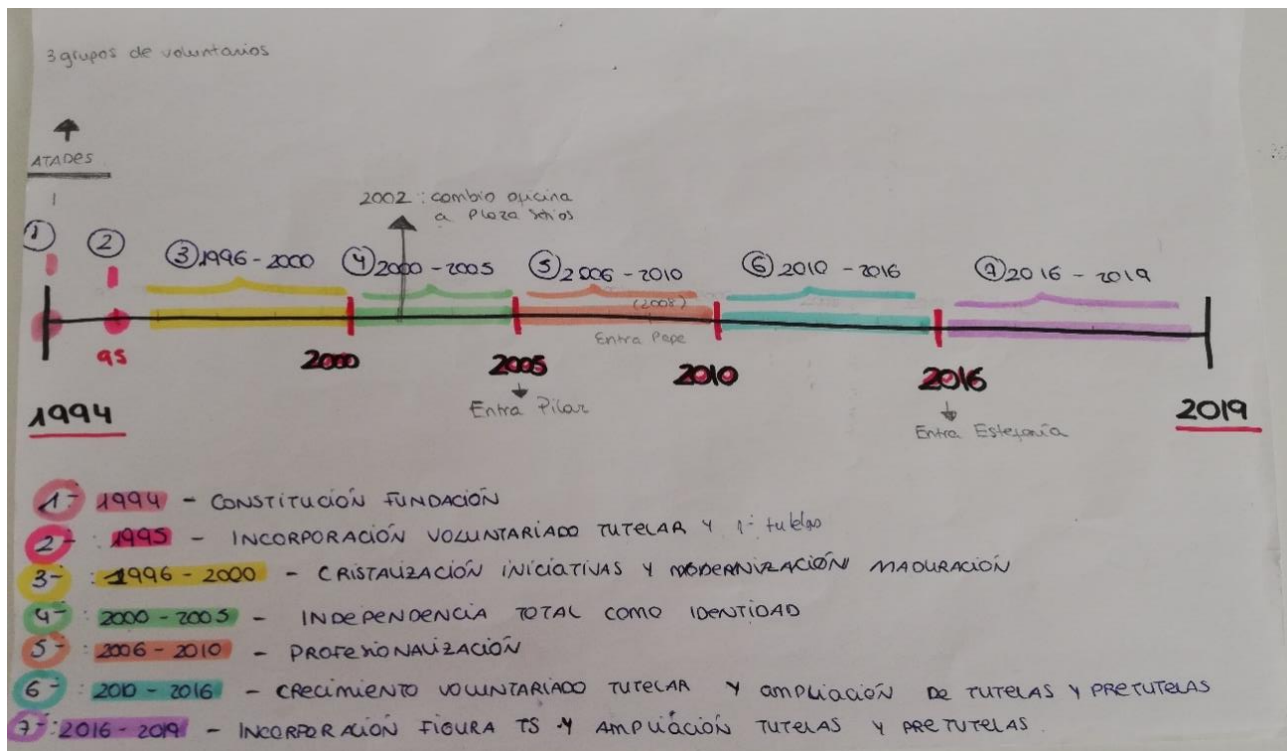 3 grupos de voluntarios
ATADES
1 2 3 1996-2000 4 2000-2005 5 2006-2010 6 2010-2016 7 2016-2019
2002: cambio oficina
a Plaza
(2008)
Entra Pepe
95 2000 2005 2010 2016
1994 2019
Entra Pilar
Entra Estefanía
1- 1994 - CONSTITUCIÓN FUNDACIÓN
2- : 1995 - INCORPORACIÓN VOLUNTARIADO TUTELAR Y 1ª tutelas
3- : 1996-2000 - CRISTALIZACIÓN INICIATIVAS Y MODERNIZACIÓN/ MADURACIÓN
4- : 2000-2005 - INDEPENDENCIA TOTAL COMO IDENTIDAD
5- : 2006-2010 - PROFESIONALIZACIÓN
6- : 2010-2016 - CRECIMIENTO VOLUNTARIADO TUTELAR Y AMPLIACIÓN DE TUTELAS Y PRETUTELAS
7- : 2016-2019 - INCORPORACIÓN FIGURA TS Y AMPLIACIÓN TUTELAS Y PRETUTELAS.